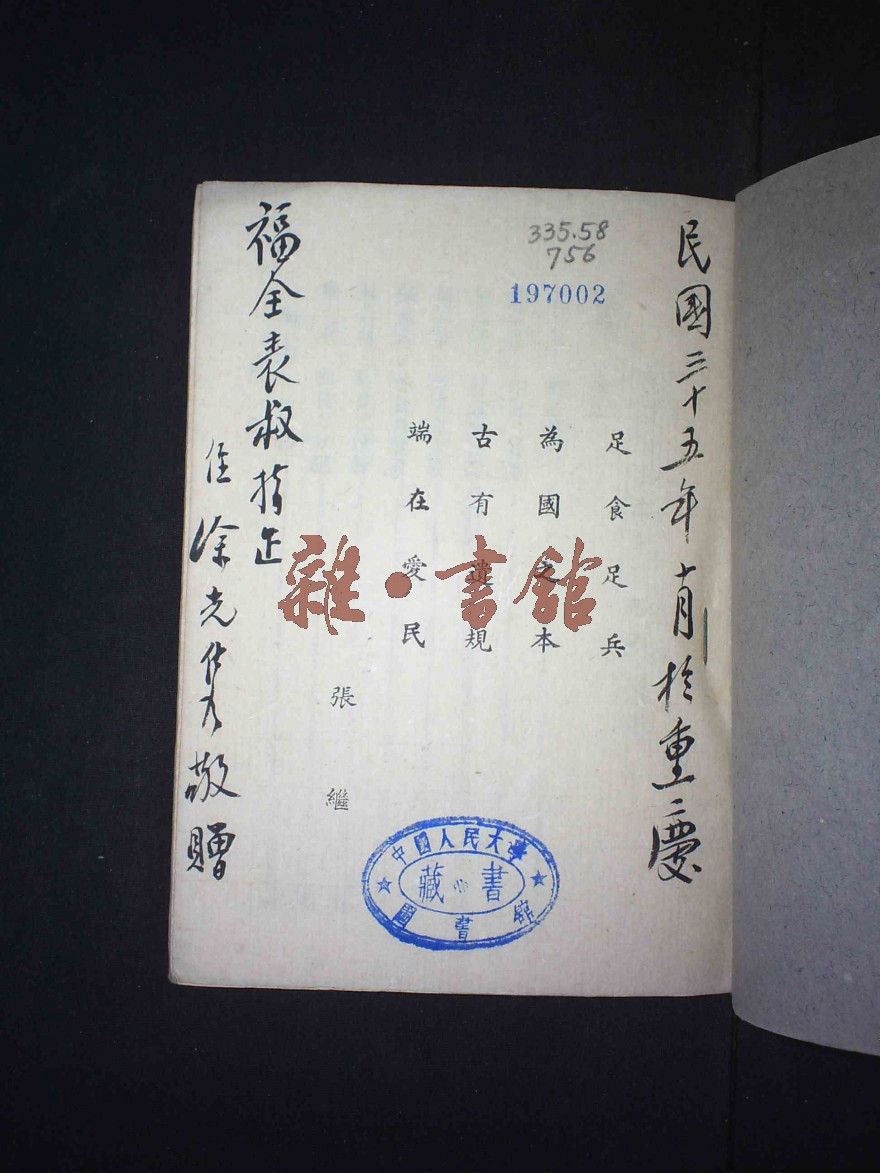 民國三十五年十月於重慶
335.58
756
197002
足食足兵
為國之本
古有遺規
端在愛民
張繼
福全表叔指正
侄徐光 敬贈
雜·書館
中國人民大學
藏書
圖書館